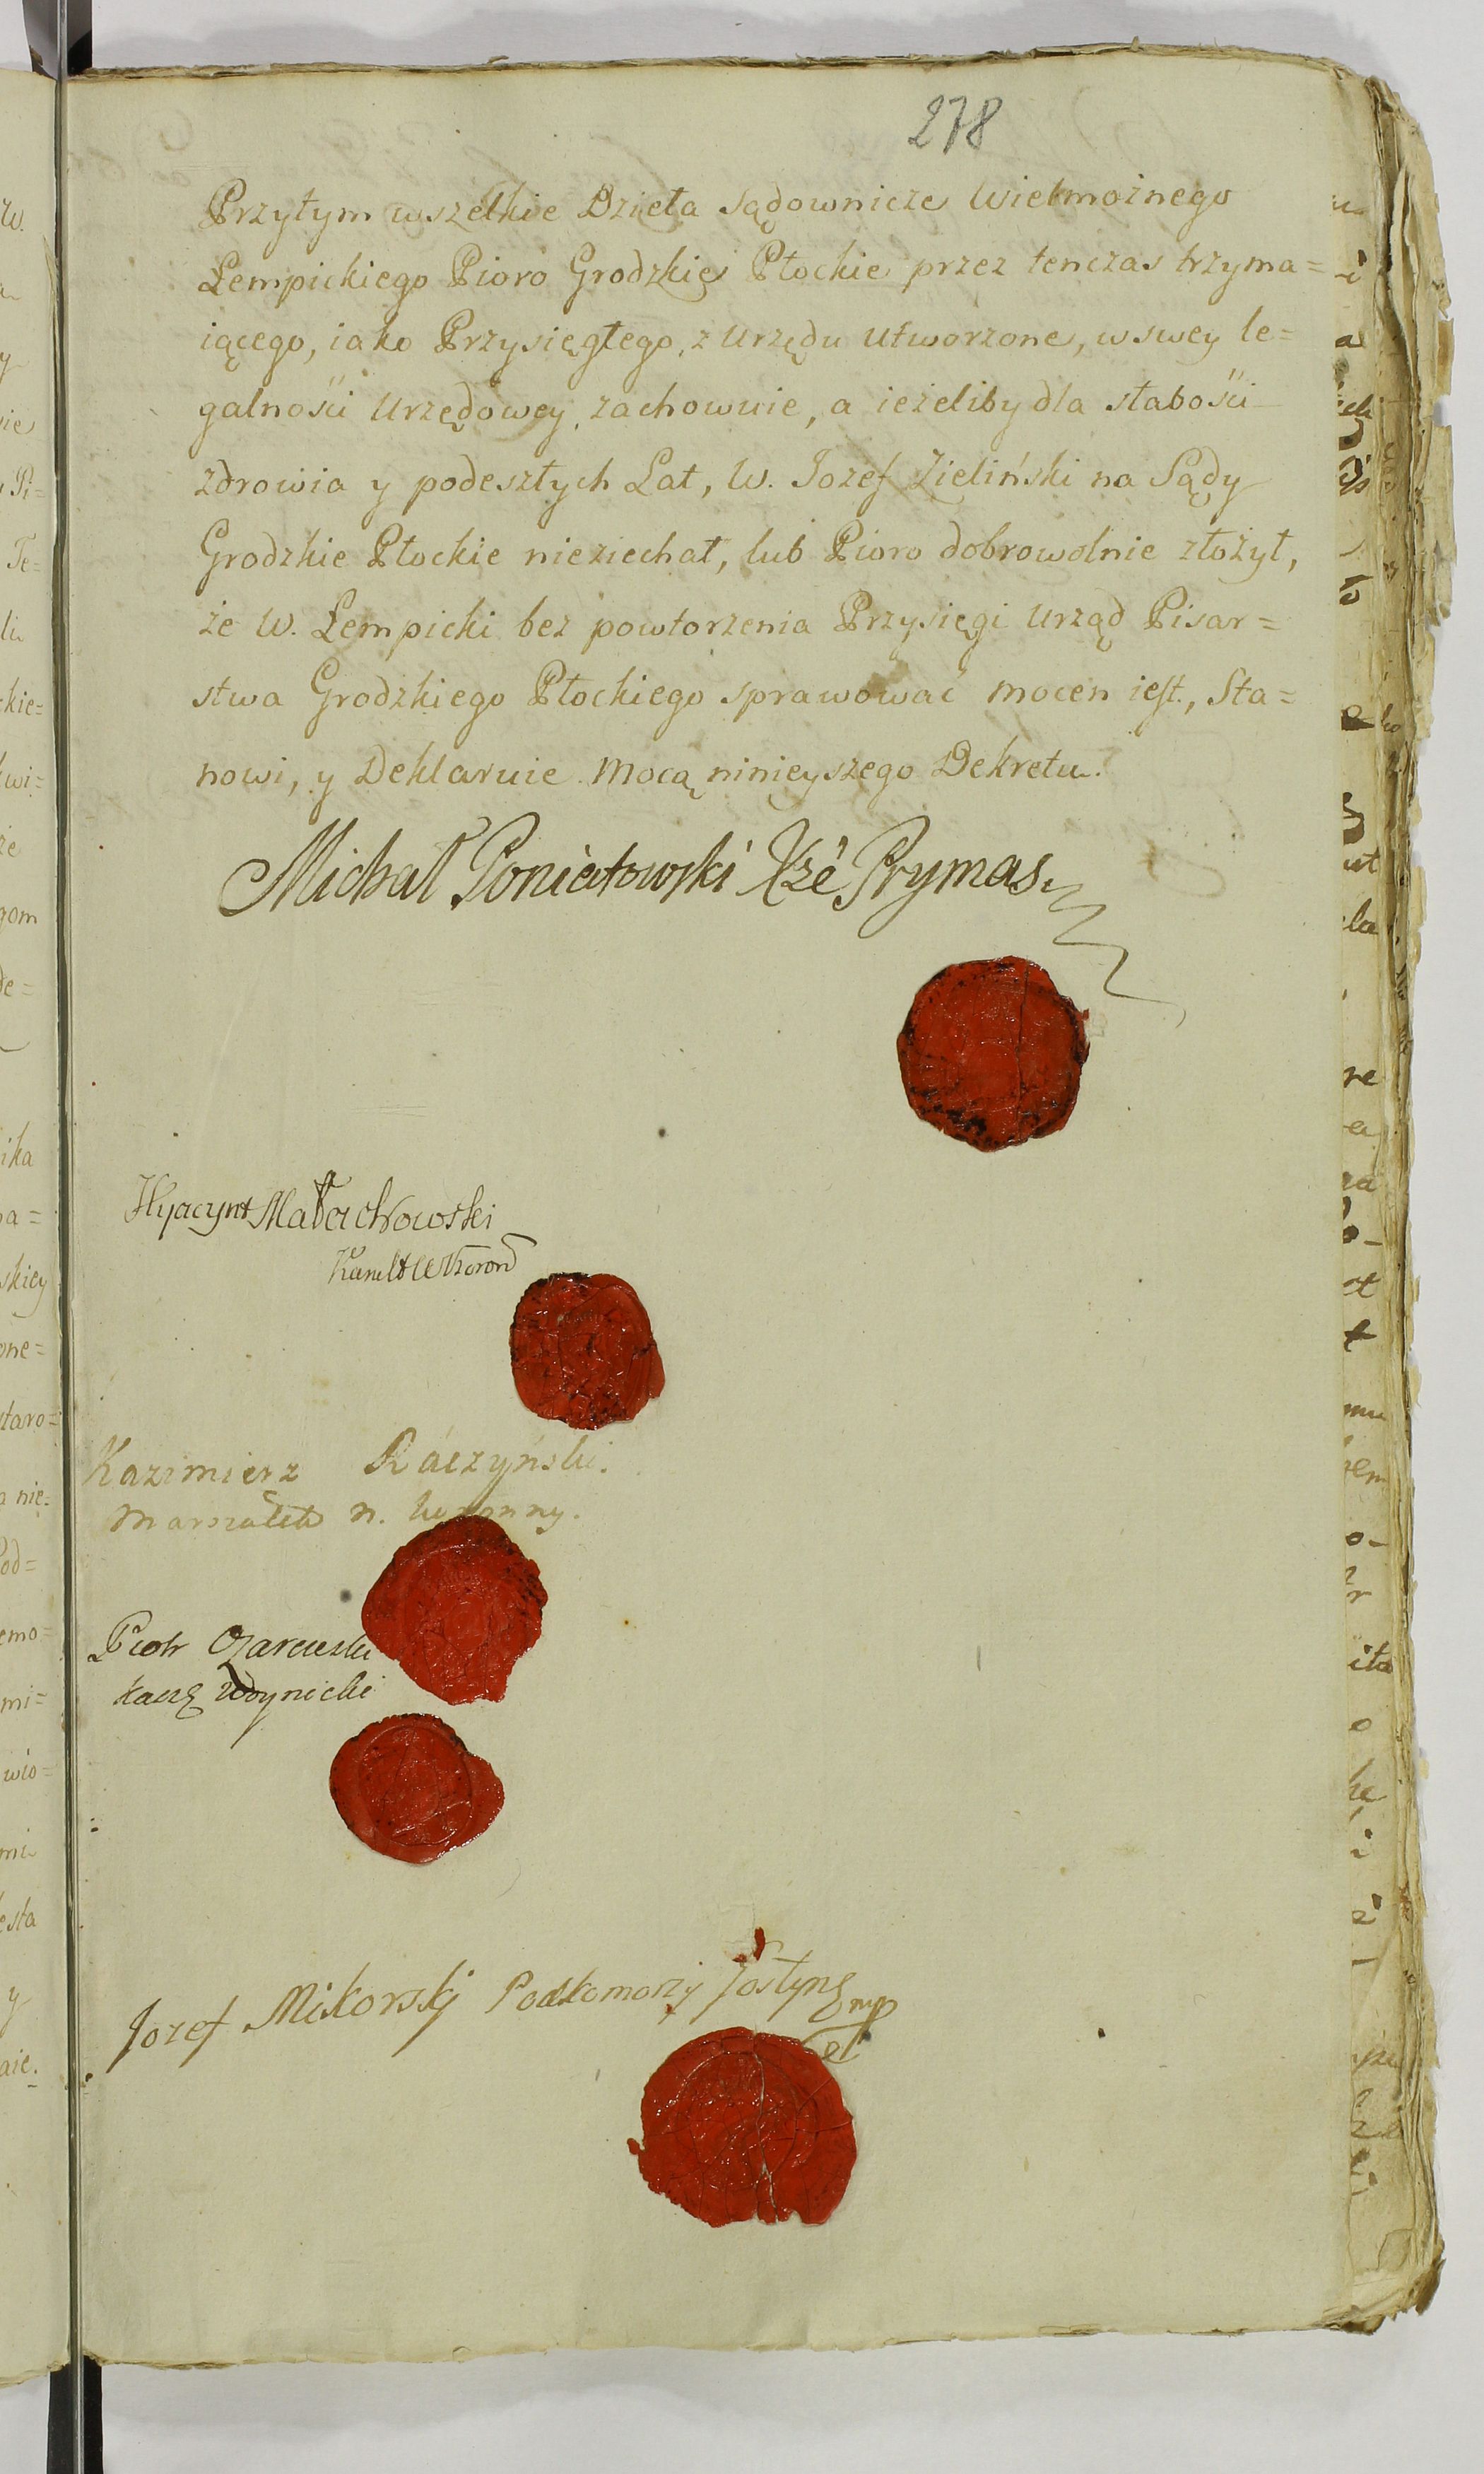 278
Przytym wszelkie Dzieła sądownicze Wielmożnego
Łempickiego Pioro Grodzkie Płockie przez tenczas trzyma=
iącego, iako Przysięgłego, z Urzędu utworzone, w swey le=
galności Urzędowey, zachowuie, a ieżeliby dla słabości
zdrowia y podeszłych Lat, W. Jozef Zieliński na Sądy
Grodzkie Płockie nieziechał, lub Pioro dobrowolnie złożył,
że W. Łempicki bez powtorzenia Przysięgi Urząd Pisar=
stwa Grodzkiego Płockiego sprawować mocen iest., Sta=
nowi, y Deklaruie Mocą ninieyszego Dekretu.
Michał Poniatowski Xżé Prymas.
Hyacynt Małachowski
Kancl W Koron
Kazimierz Ráczyński.
Marszałek n. koronny.
Piotr Ożarowski
Kaszt Woynicki
Jozef Mikorskj Podkomorzy Gostyns mp